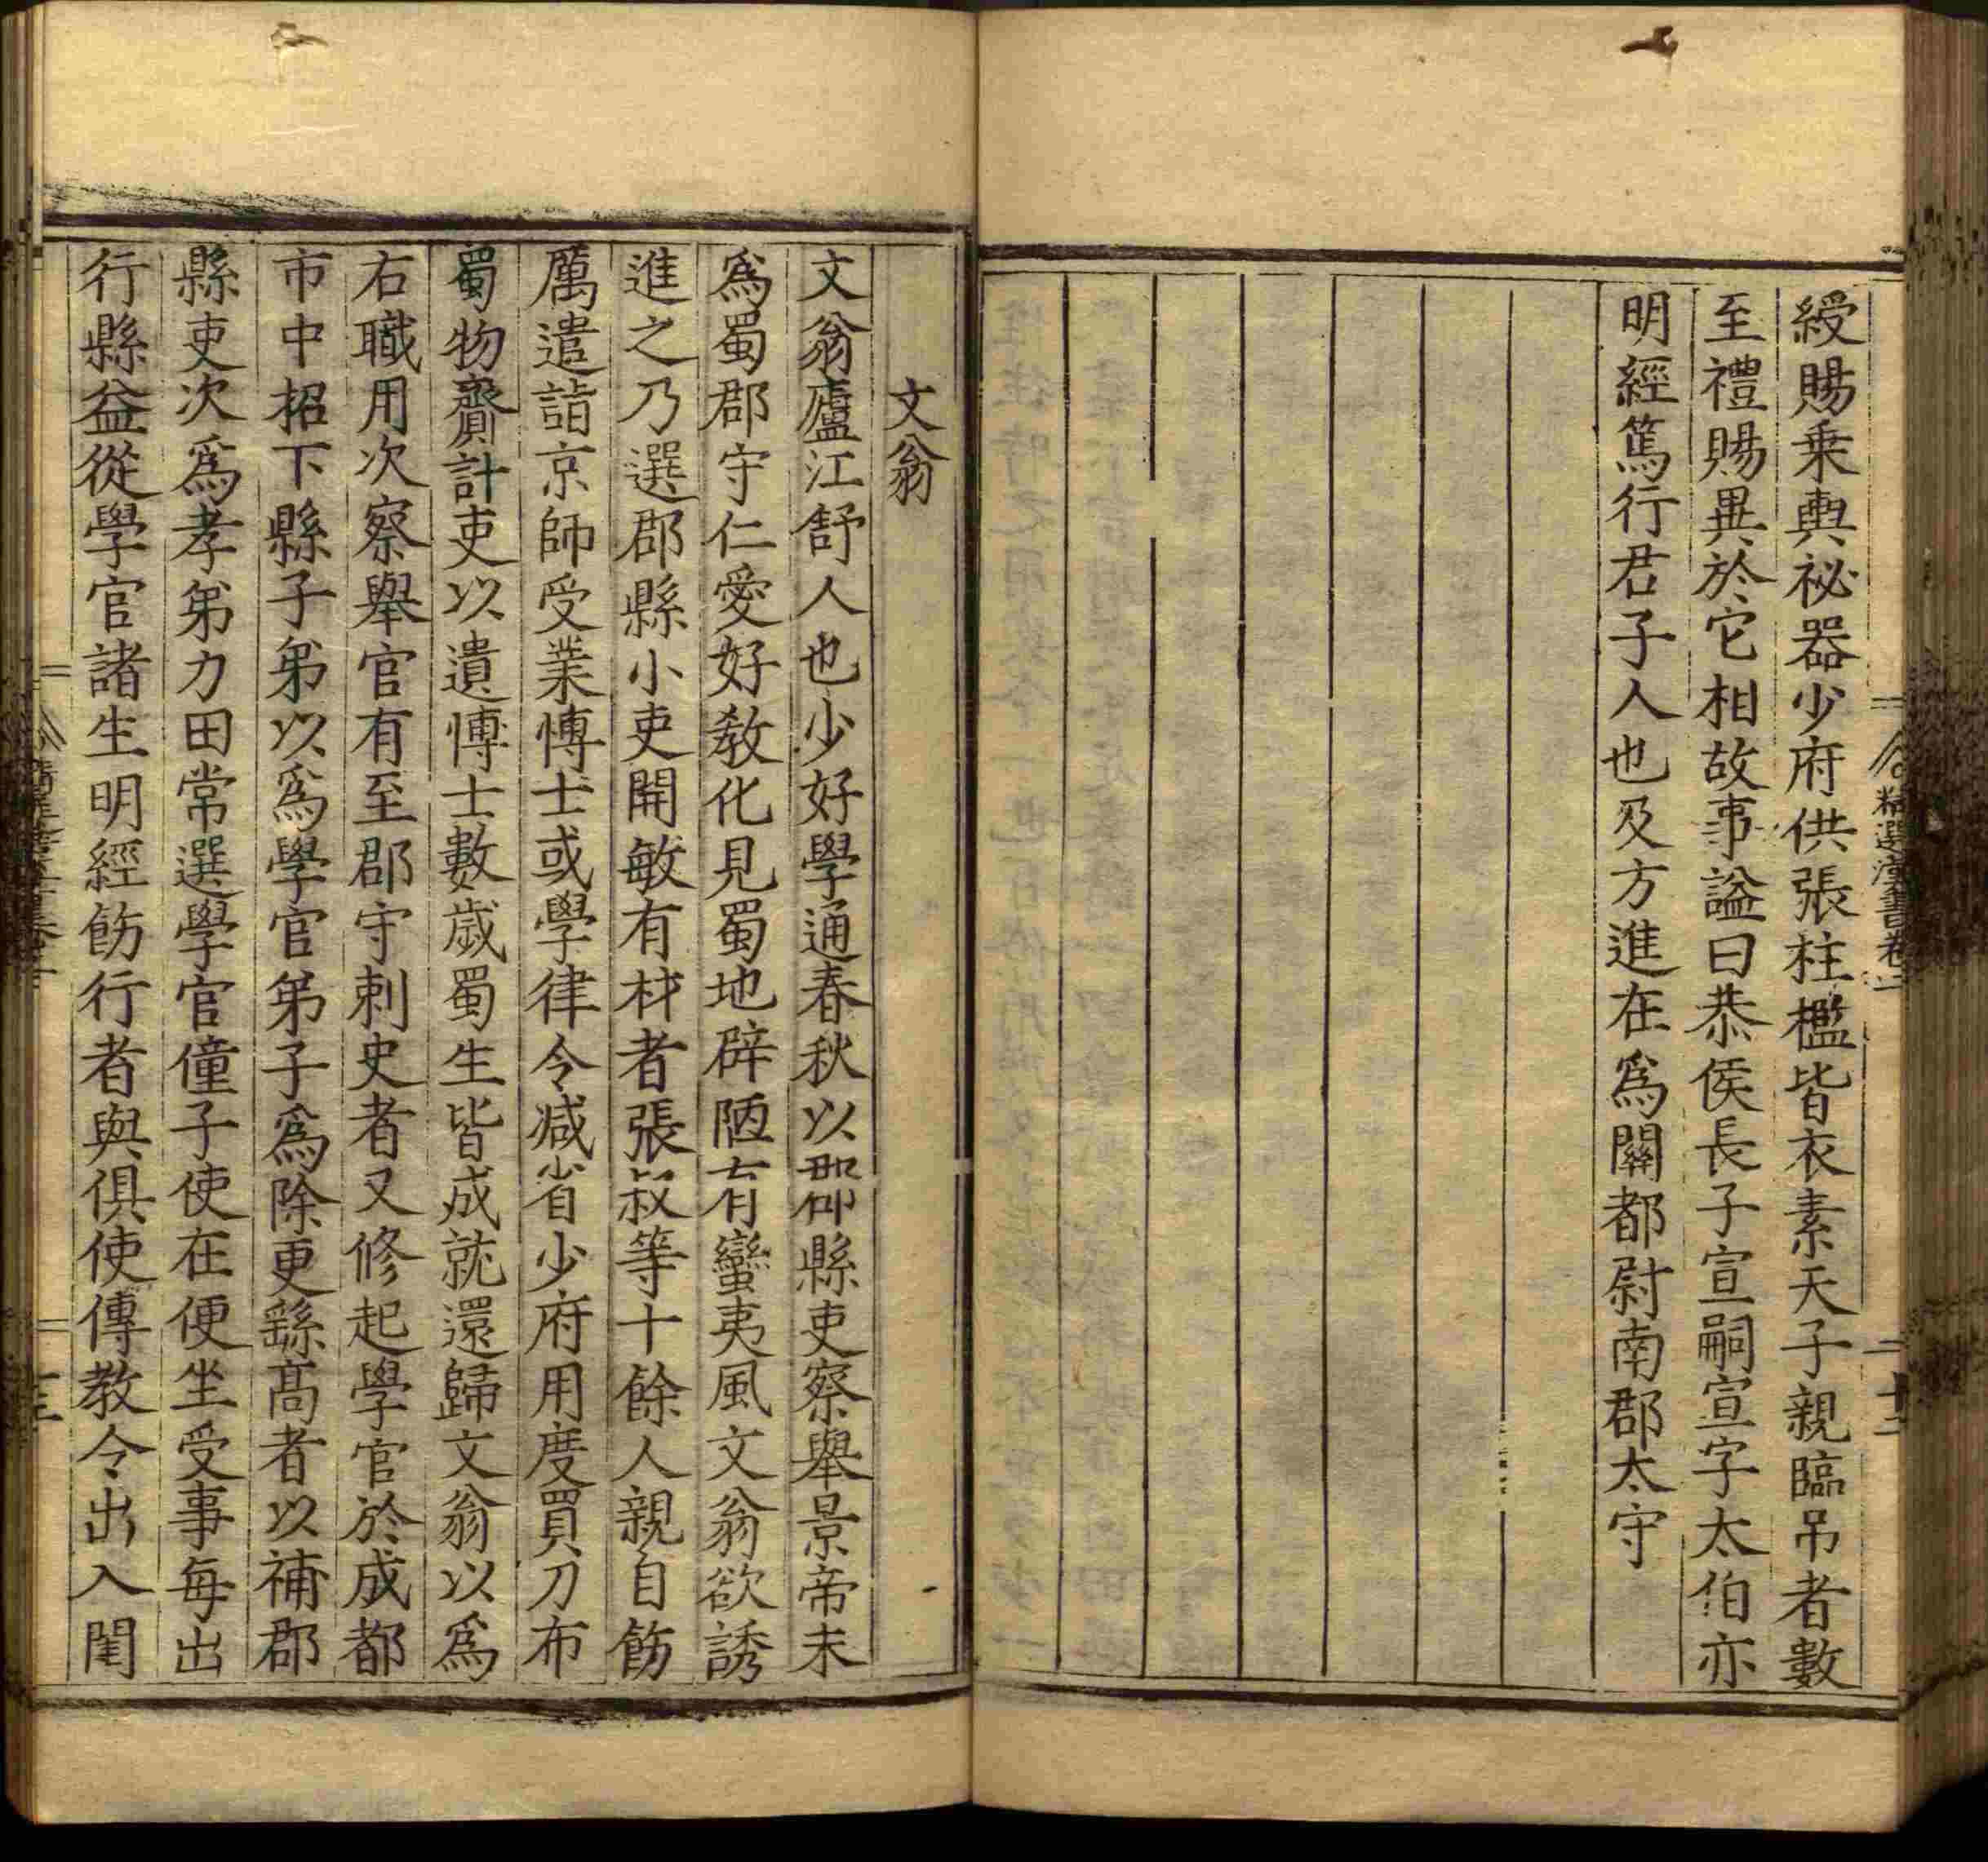 綬賜乗輿祕器少府供張柱檻皆衣素天子親臨吊者數
至禮賜異於它相故事諡曰恭侯長子宣嗣宣字太伯亦
明經篤行君子人也及方進在爲關都尉南郡太守
精選漢書卷二
十二
文翁
文翁廬江舒人也少好學通春秋以郡縣吏察舉景帝末
爲蜀郡守仁愛好敎化見蜀地辟陋有蠻夷風文翁欲誘
進之乃選郡縣小吏開敏有材者張叔等十餘人親自飭
厲遣詣京師受業博士或學律令减省少府用度買刀布
蜀物賷計吏以遺博士數歲蜀生皆成就還歸文翁以爲
右職用次察舉官有至郡守刺史者又修起學官於成都
市中招下縣子弟以爲學官弟子爲除更繇髙者以補郡
縣吏次爲孝弟力田常選學官僮子使在便坐受事每出
行縣益從學官諸生明經飭行者與俱使傳教令出入閨
十三